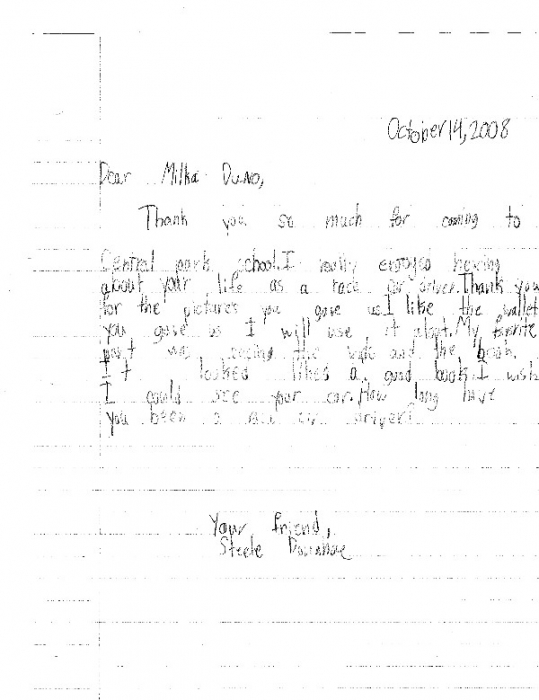 October 14, 2008
Dear Milka Duno,
Thank you so much for coming to
Central park school. I really enjoyed hering
about your life as a race car driver. Thank you
for the pictures you gave us. I like the wallet
you gave us I will use it alot. My favorite
part was seeing the and the book.
It looked likes a good book. I wish
I could see your car. How long have
you been a car driver?
Your friend,
Steele